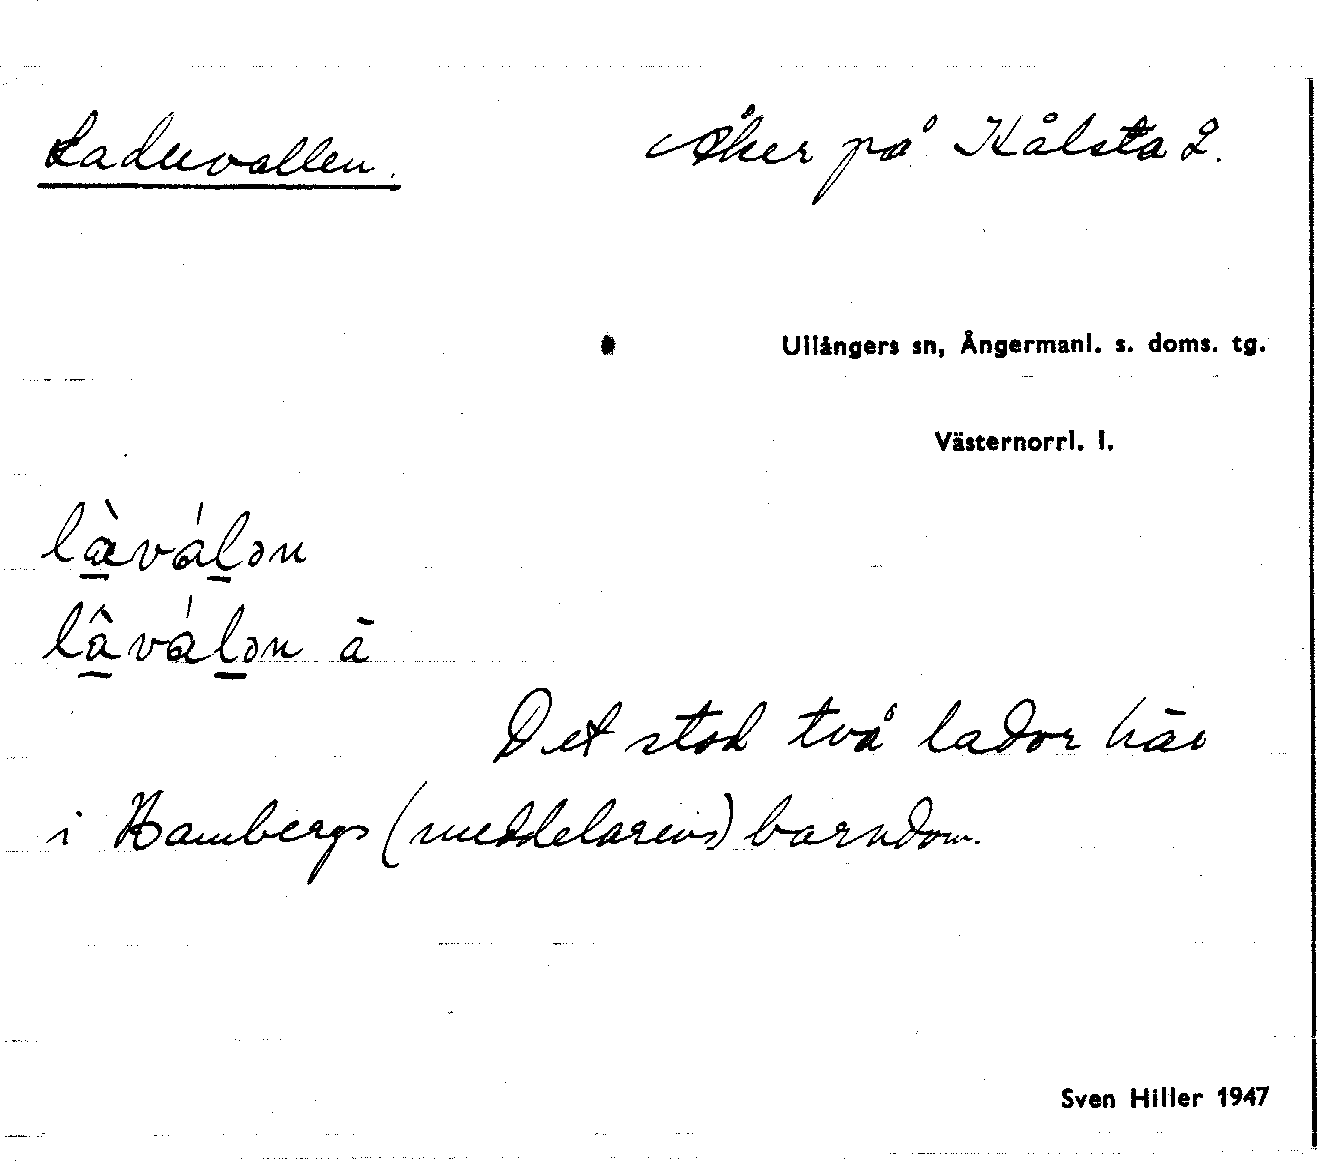 Laduvallen. Åker på Kålsta 2.
Ullångers sn, Ångermanl. s. doms. tg.
Västernorrl. l.
là̱váḻən
lâ̱váḻən ā
Det stod två lador här
i Hambergs (meddelarens) barndom.
Sven Hiller 1947